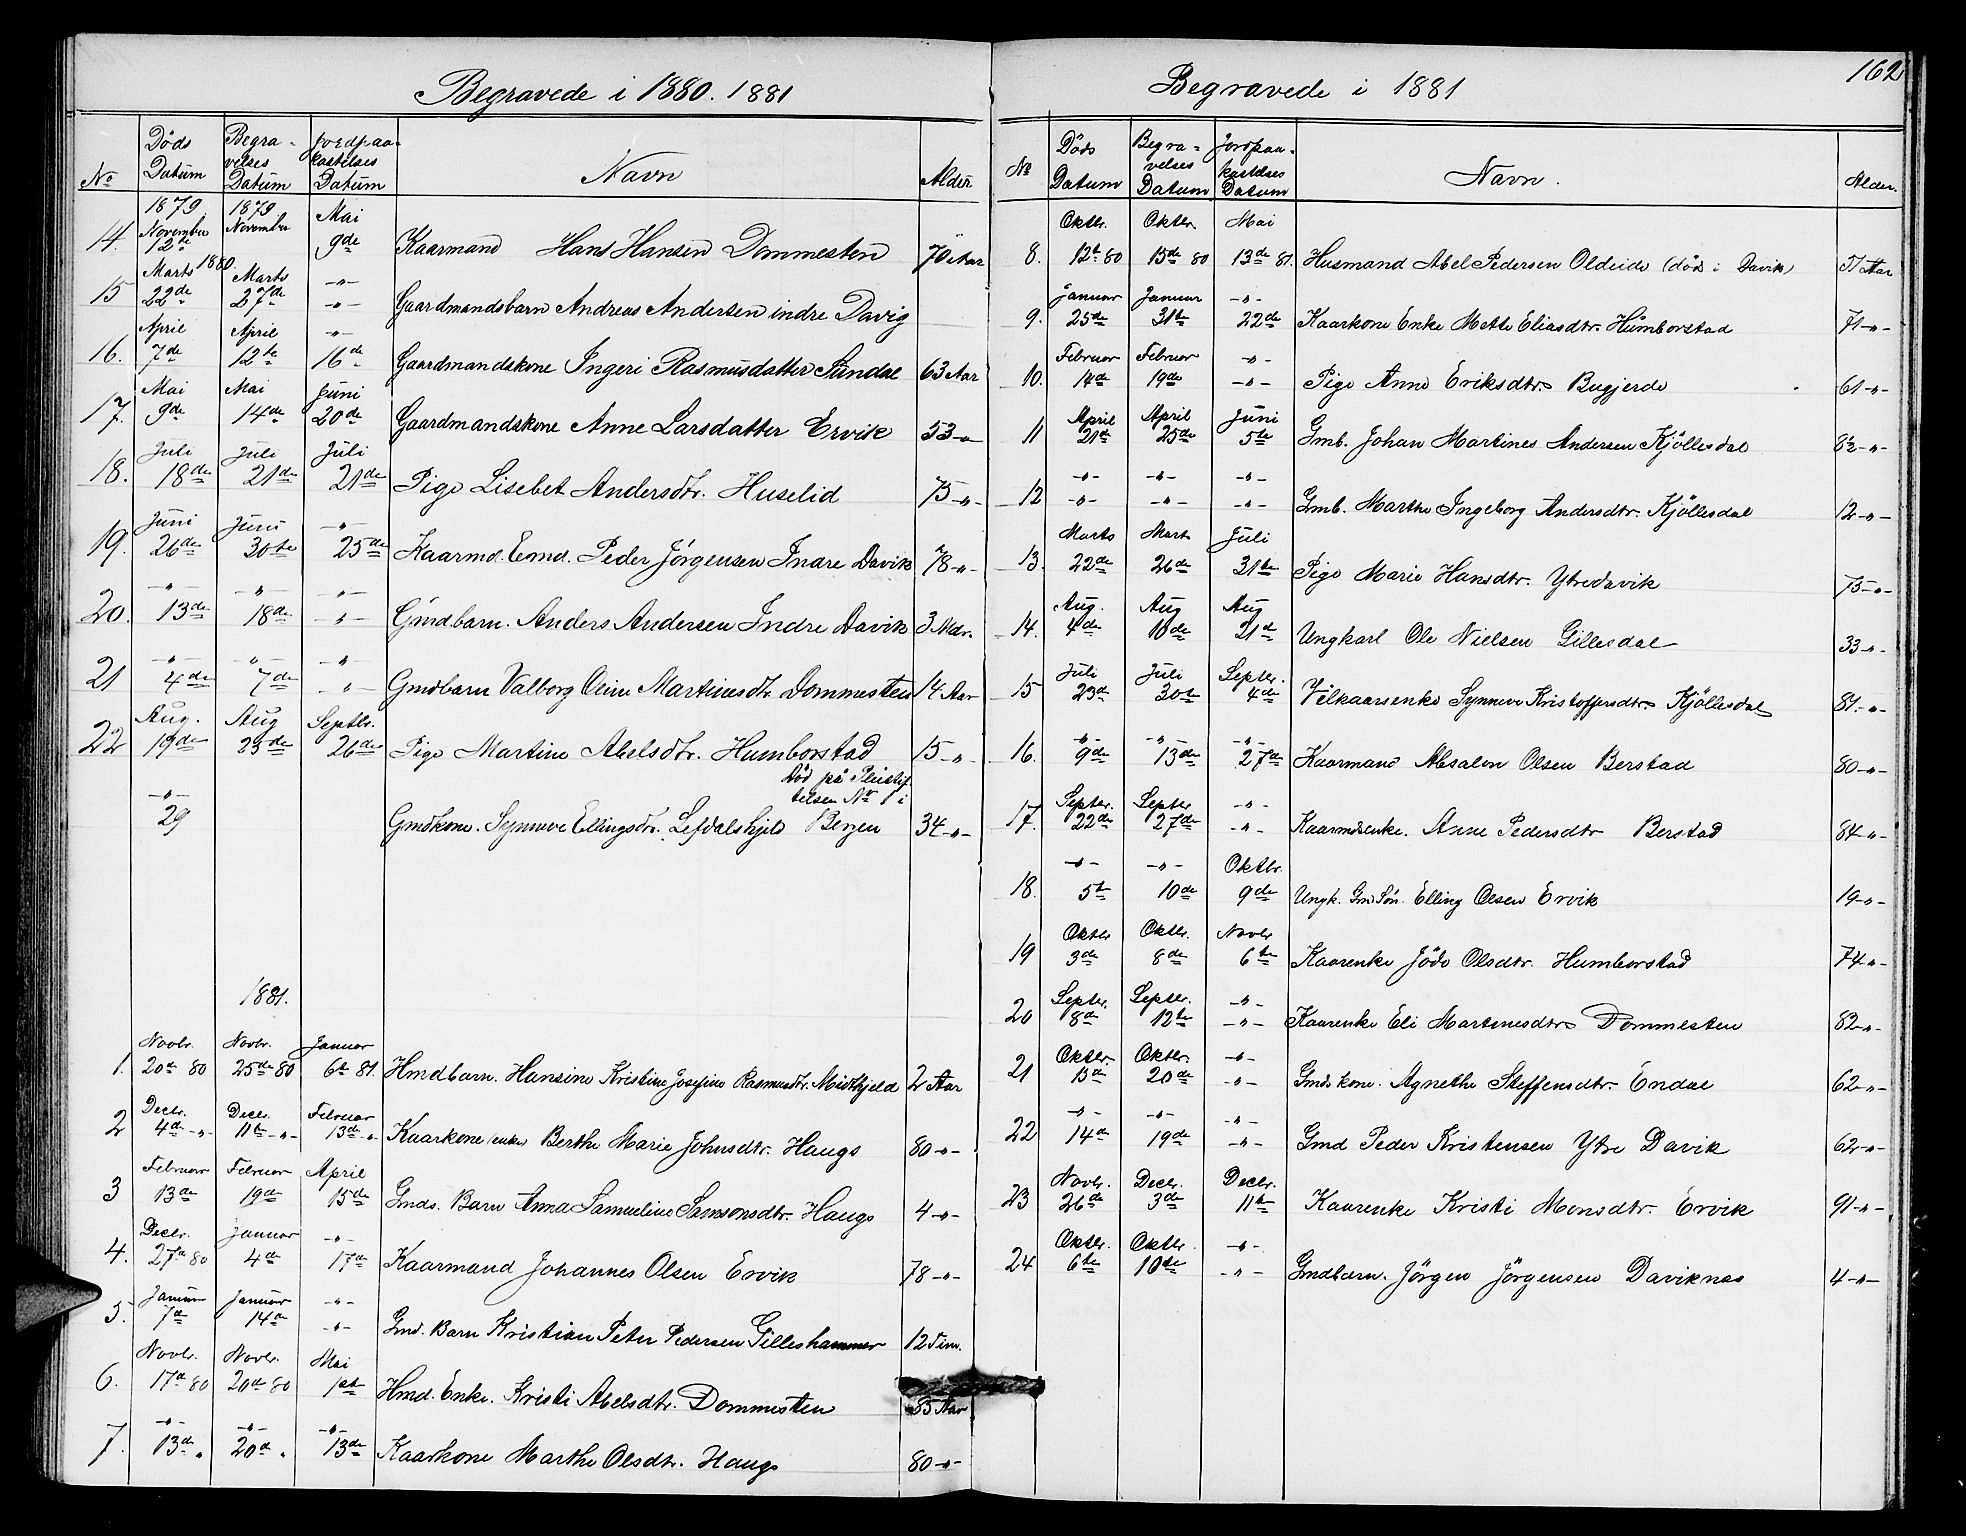 Begravede i 1880. 1881
No Døds Datum Begravelses Datum Jordpaakastelses Datum Navn Alder
14. 1879 November 12te 1879 November Mai 9de Kaarmand Hans Hansen Dommesten 70 Aar
15 Marts 1880. 22de Marts 27de -"- -"- Gaardmandsbarn Andreas Andersen indre Davig
16. April 7de April 12te -"- 16de Gaardmandskone Ingeri Rasmusdatter Sündal 63 Aar
17. Mai 9de Mai 14de Juni 20de Gaardmandskone Anne Larsdatter Ervik 53 -"-
18. Juli 18de Juli 21de Juli 21de Pige Lisebet Andersdtr. Huselid 75 -"-
19. Juni 26de Juni 30te -"- 25de Kaarmd. Emd. Peder Jørgensen Indre Davik 78 -"-
20. -"- 13de -"- 18de -"- -"- Gmdbarn. Anders Andersen Indre Davik 3 Mdr.
21 -"- 4de -"- 7de -"- -"- Gmdbarn Valborg Oline Martinusdtr Dommesten 14 Aar
22 Aug. 19de Aug 23de Septbr. 26de Pige Martine Abelsdtr. Humborstad 15 -"-
Død på Pleistif
telsen No 1 i
-"- 29 Gmdkone. Synneve Ellingsdtr. Lefdalshjeld Bergen 34 -"-
1881.
1. Novbr. 20de 80 Novbr. 25de 80 Januar 6te 81. Hmdbarn. Hansine Kristine Josefine Rasmusdtr. Midthjeld 2 Aar
2 Decbr. 4de -"- Decbr. 11te -"- Februar 13de " Kaarkone (enke) Berthe Marie Johnsdtr. Haugs 80 -"-
3 Februar 13de Februar 19de April 15de Gmds. Barn Anna Samueline Samsonsdtr. Haugs 4 -"-
4. Decbr. 27de 80 Januar 4de -"- 17de Kaarmand Johannes Olsen Ervik 78 -"-
5. Januar 7de Januar 14de -"- -"- Gmd. Barn Kristian Peter Pedersen Gilleshammer 12 Tim.
6. Novbr. 17de 80 Novbr. 20de 80 Mai 1ste Hmd. Enke. Kristi Abelsdtr. Dommesten 85 Aar
7. -"- 13de " -"- 20de " -"- 13de Kaarkone Marthe Olsdtr. Haugs 80 -"-
162
Begravede i 1881
No Døds Datum Begravelses Datum Jordpaakastelses Datum Navn. Alder.
8. Oktbr. 12te 80 Oktbr 15de 80 Mai 13de 81. Husmand Abel Pedersen Oldeide (død i Davik) Aar
9. Januar 25de Januar 31te -"- 22de Kaarkone Enke Mette Eliasdtr. Humborstad 71 -"-
10. Februar 14de Februar 19de -"- -"- Pige Anne Eriksdtr. Bugjerde 61 -"-
11 April 21de April 25de Juni 5te Gmb. Johan Martines Andersen Kjöllesdal 8½ -"-
12 -"- -"- -"- -"- -"- -"- Gmb. Marthe Ingeborg Andersdtr. Kjöllesdal 12 -"-
13. Marts 22de Marts 26de Juli 31te Pige Marie Hansdtr. Ytredavik 75 -"-
14. Aug. 4de Aug 10de Aug 21de Ungkarl Ole Nielsen Gillesdal 33 -"-
15 Juli 23de Juli 30te Septbr. 4de Vilkaarsenke Synneve Kristoffersdtr. Kjöllesdal 81. -"-
16. -"- 9de -"- 13de -"- 27de Kaarmand Absalon Olsen Berstad 80 -"-
17. Septbr. 22de Septbr 27de -"- -"- Kaarmdsenke. Anne Pedersdtr Berstad 84 -"-
18. -"- 5te -"- 10de Oktbr. 9de Ungk. Gmd Søn. Elling Olsen Ervik 19 -"-
19 Oktbr 3de Oktbr. 8de Novbr 6te Kaarenke Jöde Olsdtr. Humborstad 74 -"-
20 Septbr. 8de Septbr. 12te -"- -"- Kaarenke Eli Martinusdtr. Dommesten 82 -"-
21 Oktbr. 15de Oktbr. 20de -"- -"- Gmds kone. Agnethe Steffensdtr. Endal 62 -"-
22 -"- 14de -"- 19de -"- -"- Gmd Peder Kristensen Ytre Davik 62 -"-
23 Novbr. 26de Decbr. 3de Decbr. 11te Kaarenke Kristi Monsdtr. Ervik 91 -"-
24 Oktbr. 6te Oktbr. 10de -"- -"- Gmdbarn. Jörgen Jörgensen Daviknes 4 -"-